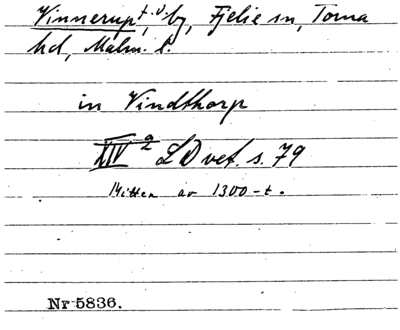 Vinnerup, t.d. by, Fjelie sn, Torna
hd, Malm. l.
in Vindthorp
XIV 2/2 LDvet. s. 79
Mitten av 1300-t.
Nr 5836.